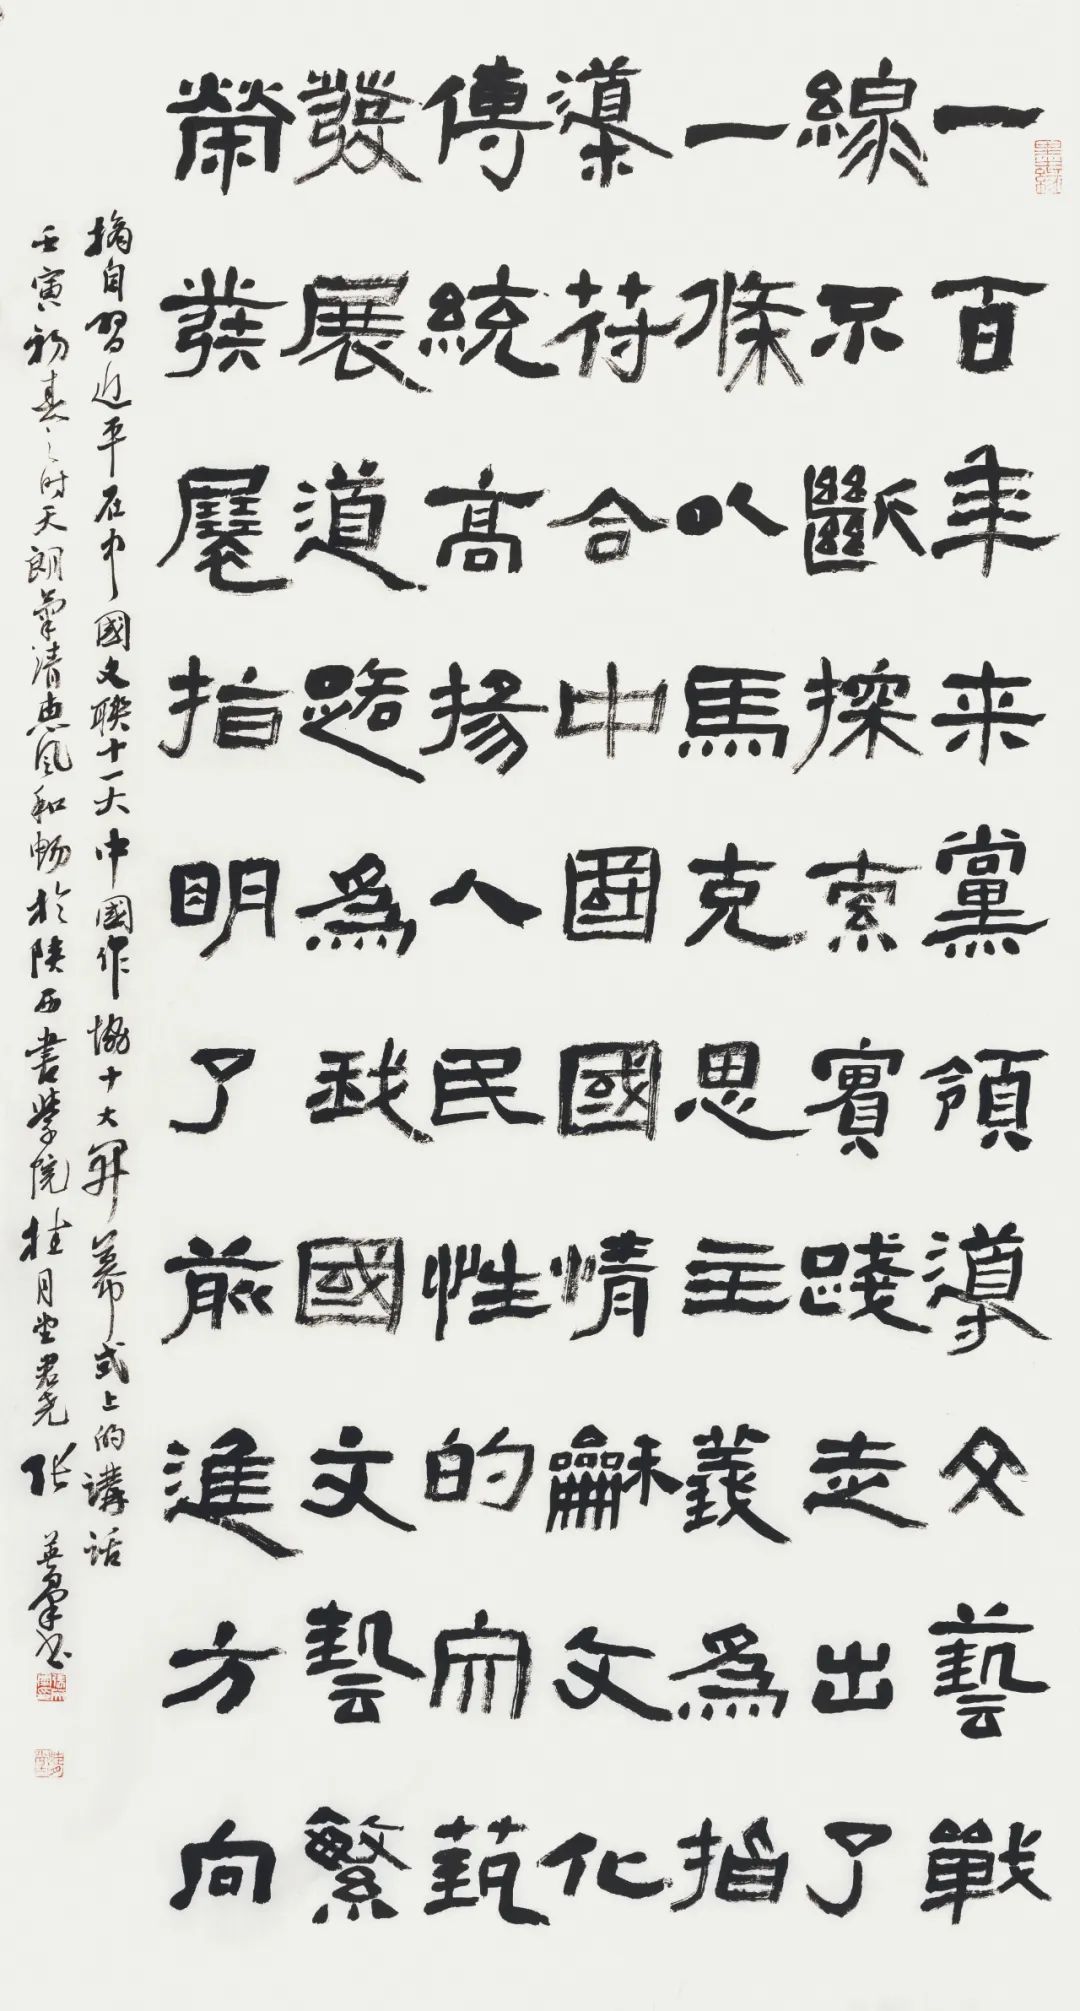 一百年来黨領導文藝戰
線不斷探索實踐走出了
一條以馬克思主義為指
導符合中國國情龢文化
傳統高揚人民性的文藝
發展道路為我國文藝繁
榮發展指明了前進方向
摘自習近平在中國文聯十一大中國作協十大開幕式上的講話
壬寅初春之时天朗氣清惠風和畅於陝西書學院桂月堂君堯张英羣书